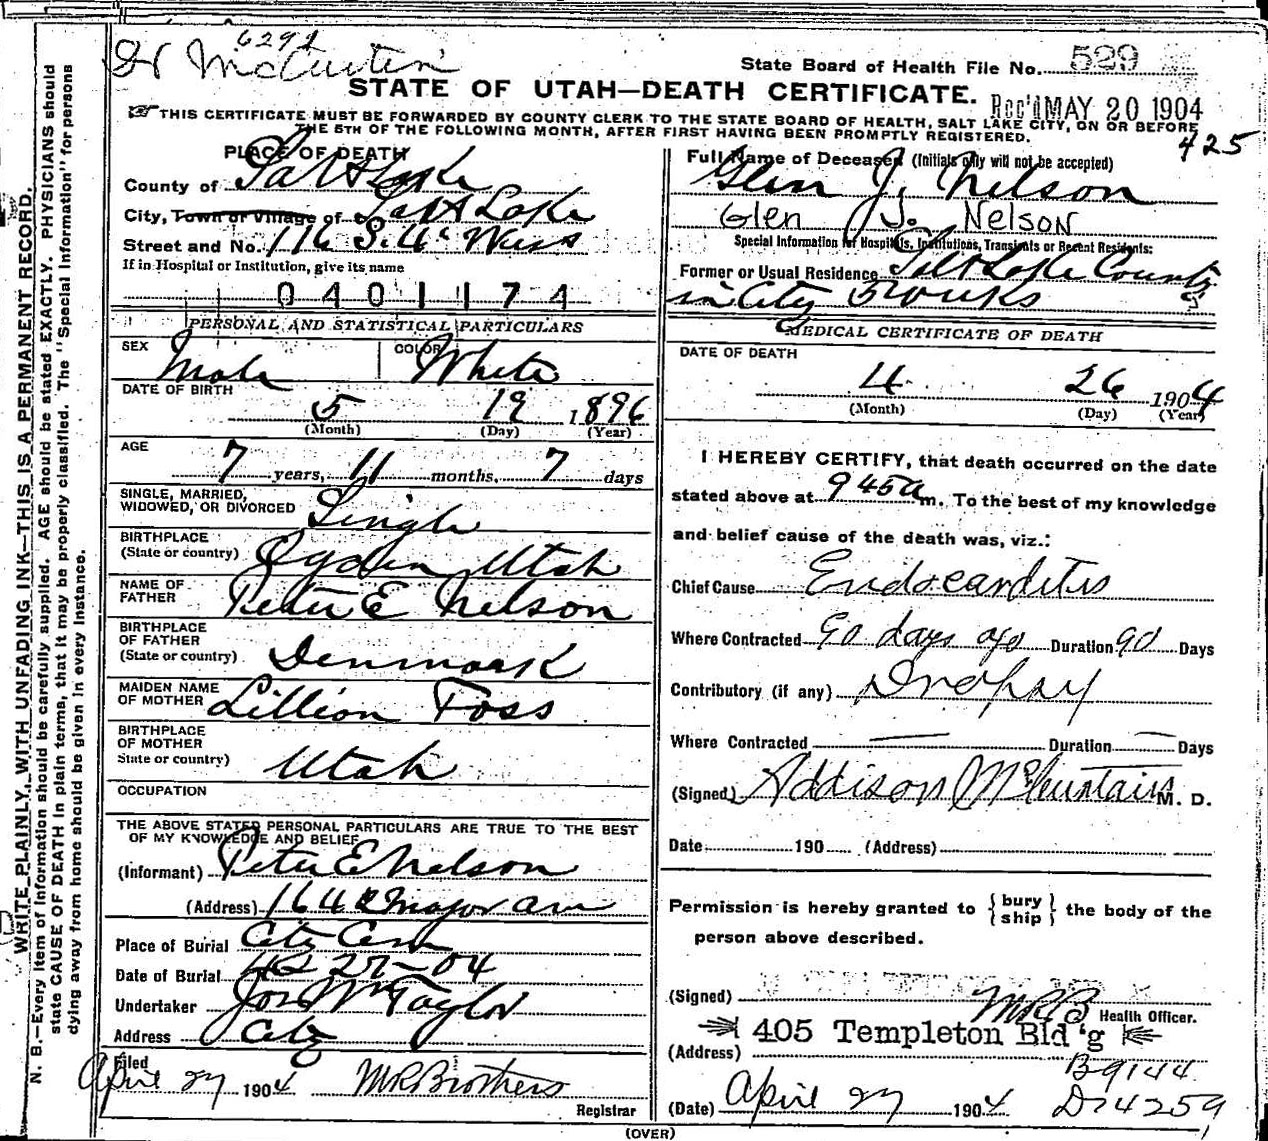 6291
State Board of Health File No. 529
STATE OF UTAH—DEATH CERTIFICATE.
Rec'd MAY 20 1904
THIS CERTIFICATE MUST BE FORWARDED BY COUNTY CLERK TO THE STATE BOARD OF HEALTH, SALT LAKE CITY, ON OR BEFORE
THE 5TH OF THE FOLLOWING MONTH, AFTER FIRST HAVING BEEN PROMPTLY REGISTERED.
425
PLACE OF DEATH
County of Salt Lake
City, Town or Village of Salt Lake
Street and No. 116 S. 4th West
If in Hospital or Institution, give its name
0401174
PERSONAL AND STATISTICAL PARTICULARS
SEX Male COLOR White
DATE OF BIRTH
5 19 1896
(Month) (Day) (Year)
AGE
7 years, 11 months, 7 days
SINGLE, MARRIED,
WIDOWED, OR DIVORCED Single
BIRTHPLACE
(State or country) Ogden Utah
NAME OF
FATHER Peter E Nelson
BIRTHPLACE
OF FATHER
(State or country) Denmark
MAIDEN NAME
OF MOTHER Lillion Foss
BIRTHPLACE
OF MOTHER
State or country) Utah
OCCUPATION
THE ABOVE STATED PERSONAL PARTICULARS ARE TRUE TO THE BEST
OF MY KNOWLEDGE AND BELIEF
(Informant) Peter E Nelson
(Address) 164 Major ave
Place of Burial City Cem
Date of Burial 4 27-04
Undertaker Jos Wm Taylor
Address City
Filed
April 27 1904 MR Brothers
Registrar
Full Name of Deceased (Initials only will not be accepted)
Glen J. Nelson
Glen J. Nelson
Special Information for Hospitals, Institutions, Transients or Recent Residents:
Former or Usual Residence Salt Lake County
in City 5 weeks
MEDICAL CERTIFICATE OF DEATH
DATE OF DEATH
4 26 1904
(Month) (Day) (Year)
I HEREBY CERTIFY, that death occurred on the date
stated above at 9 45 a m. To the best of my knowledge
and belief cause of the death was, viz.:
Chief Cause Endocarditis
Where Contracted 90 days ago Duration 90 Days
Contributory (if any) Dropsy
Where Contracted — Duration — Days
(Signed) Addison M. D.
Date 190 (Address)
Permission is hereby granted to { bury
ship } the body of the
person above described.
(Signed) MRB Health Officer.
405 Templeton Bld'g
(Address)
B9144
(Date) April 27 1904 D14259
(OVER)
WRITE PLAINLY, WITH UNFADING INK—THIS IS A PERMANENT RECORD.
N. B.—Every item of information should be carefully supplied. AGE should be stated EXACTLY. PHYSICIANS should
state CAUSE OF DEATH in plain terms, that it may be properly classified. The "Special Information" for persons
dying away from home should be given in every instance.